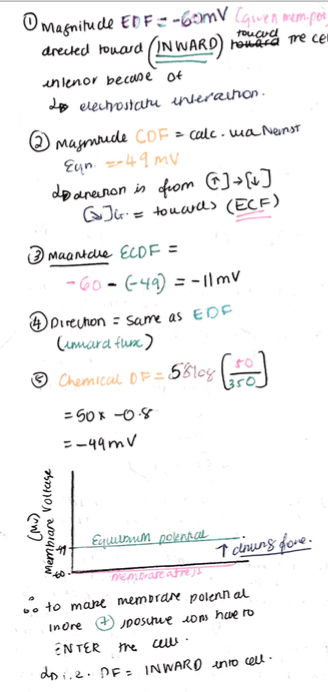 ① Magnitude EDF = -60mV (given mem.pot)
directed toward (INWARD) toward the cel
interior because of
↳ electrostatic interaction.
② Magnitude CDF = calc. via Nernst
Eqn. = -49 mV
↳ direction is from [↑]→[↓]
[↘]Gr. = towards (ECF)
③ Magnitude ECDF =
-60 - (-49) = -11mV
④ Direction = same as EDF
(inward flux)
⑤ Chemical DF = 58log [50/350]
= 50 x -0.8
= -49mV
Membrane Voltage (mV)
Equilibrium potential
-49
↑ driving force.
-60
membrane at rest
∴ to make membrane potential
more ⊕, positive ions have to
ENTER the cell.
↳ i.e. DF = INWARD into cell.